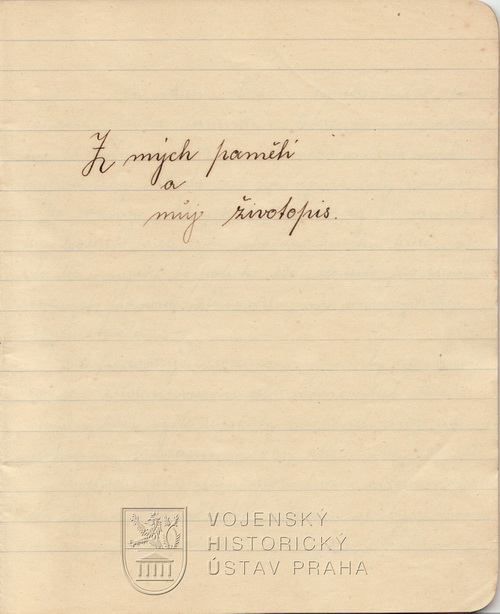 Z mých paměti
a
můj životopis.
VOJENSKÝ
HISTORICKÝ
ÚSTAV PRAHA